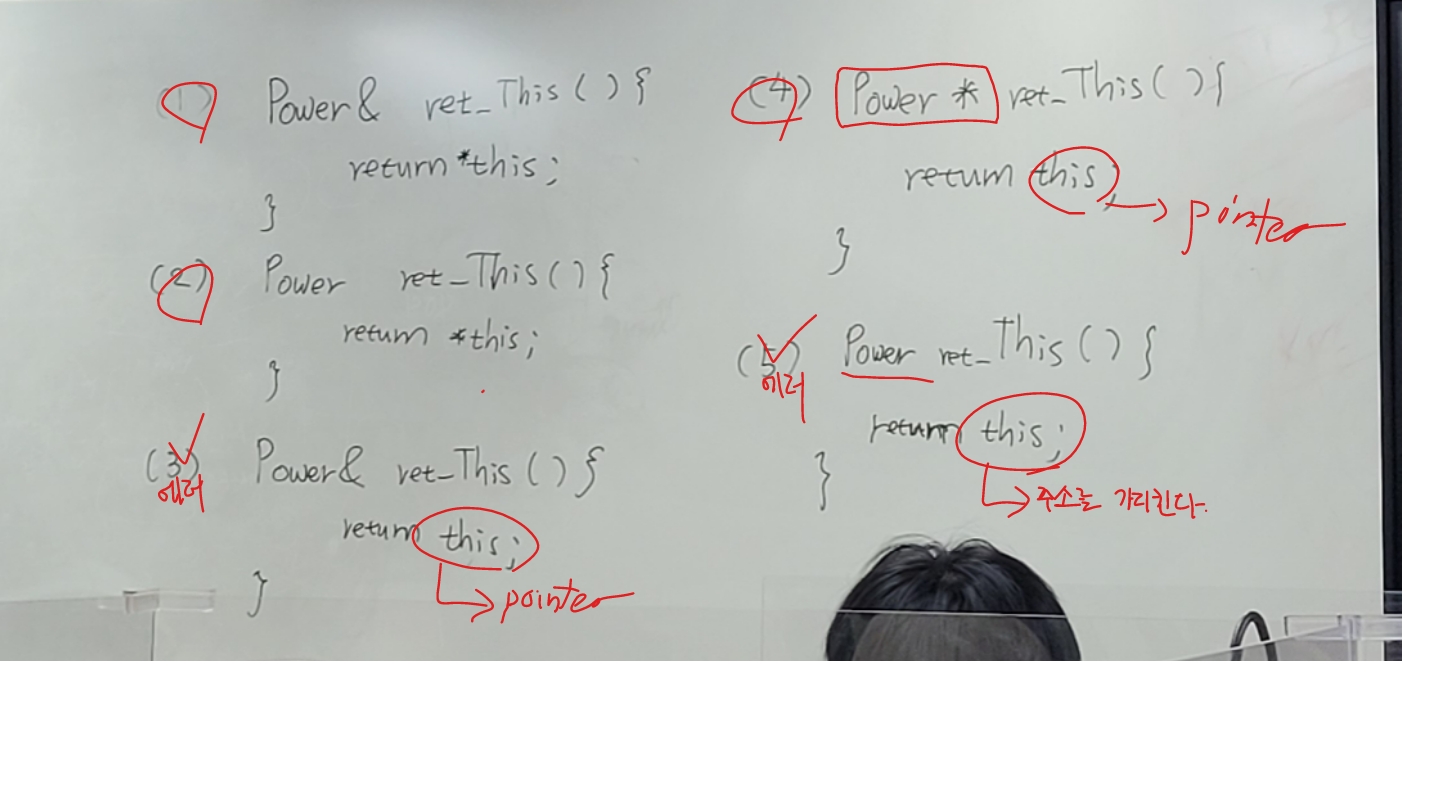 (1) Power& ret_This(){
return *this;
}
(2) Power ret_This(){
return *this;
}
(3) Power& ret_This(){
에러
return this;
pointer
}
(4) Power * ret_This(){
return this;
pointer
}
(5) Power ret_This(){
에러
return this;
주소를 가리킨다.
}